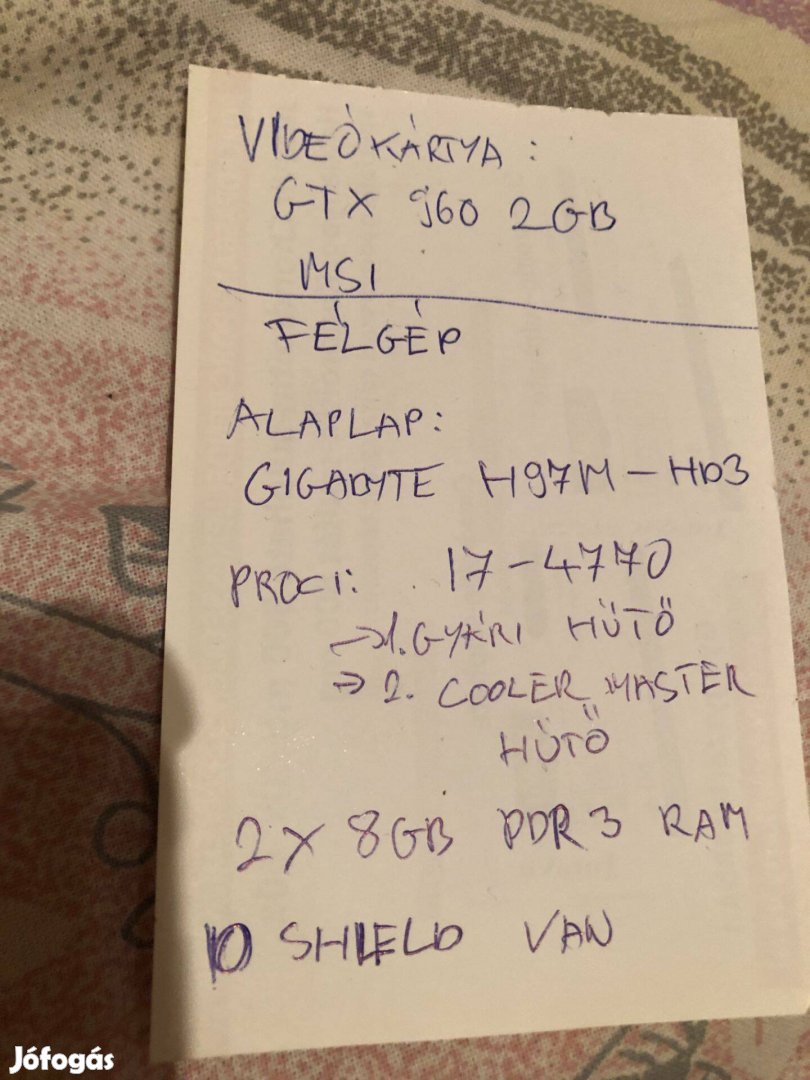 VIDEÓKÁRTYA:
GTX 960 2GB
MSI
FÉLGÉP
ALAPLAP:
GIGABYTE H97M-HD3
PROCI: I7-4770
→1. GYÁRI HŰTŐ
→ 2. COOLER MASTER
HŰTŐ
2X 8GB DDR3 RAM
IO SHIELD VAN
Jófogás